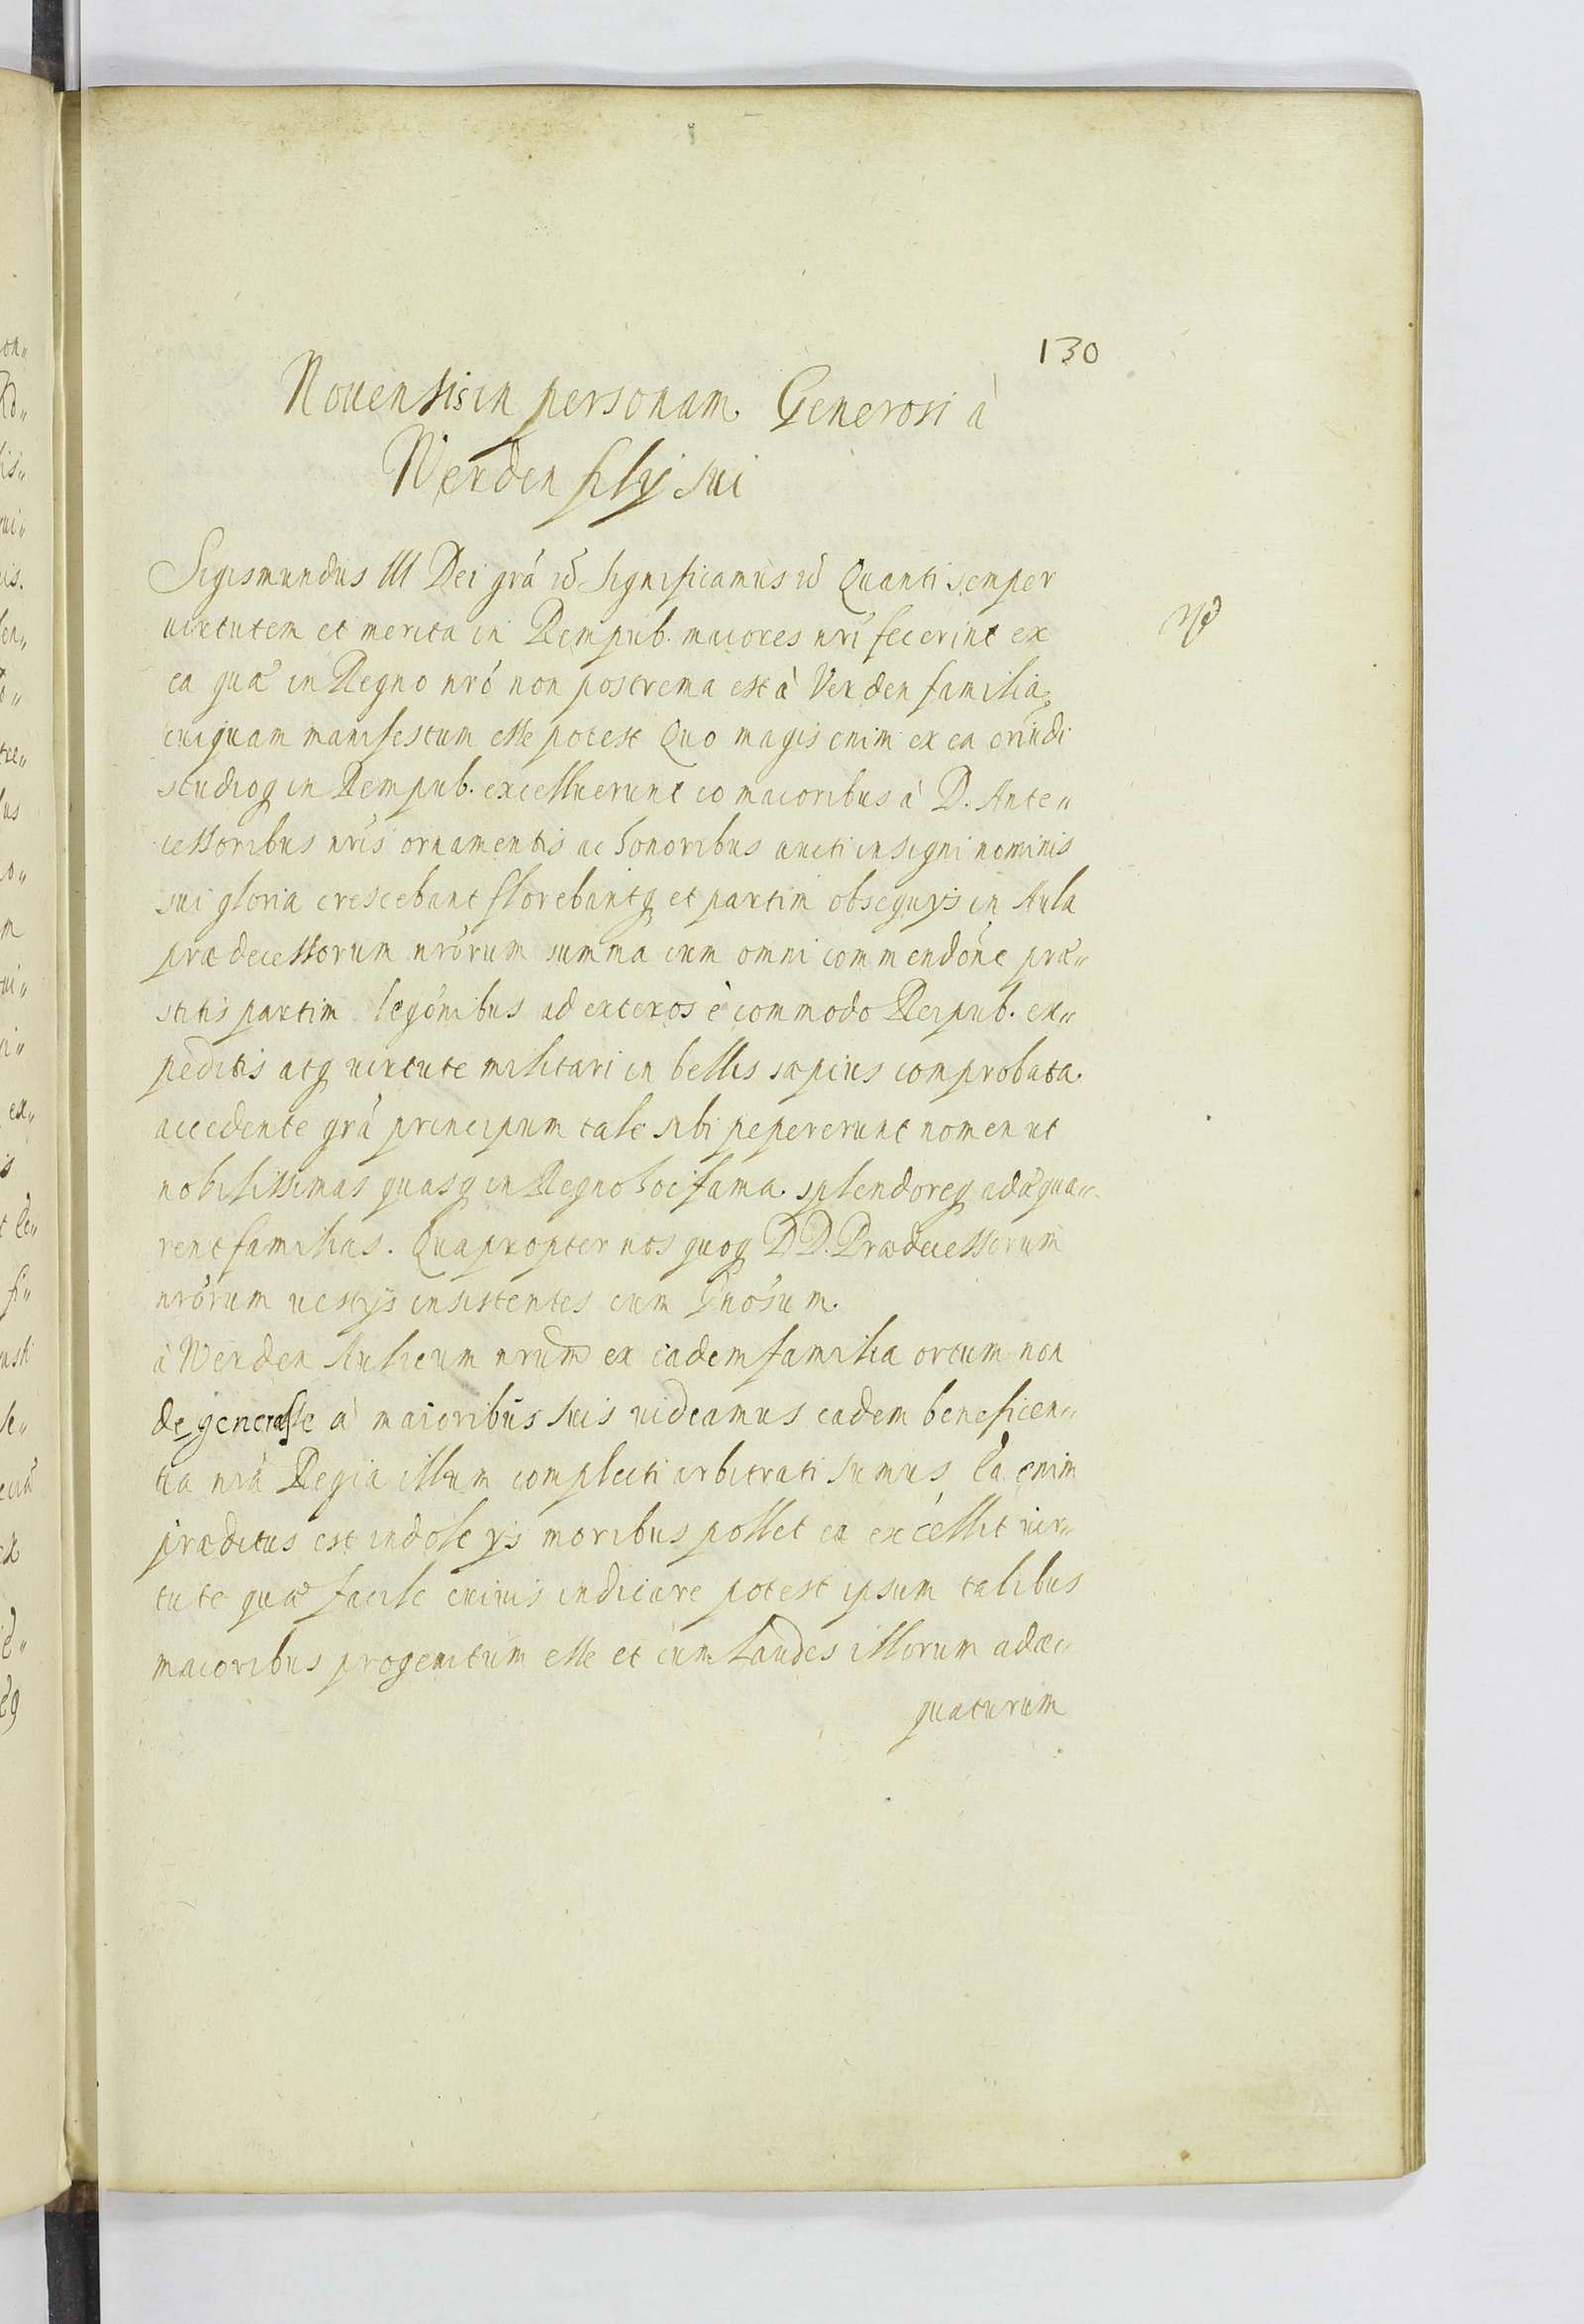 130
Nouensis in personam Generosi à
Werden filÿ sui
Sigismundus III Dei grã Significamus Quanti semper
uirtutem et merita in Rempub. maiores nri fecerint ex
ea quæ in Regno nro non postrema est à Verden familia
cuiquam manifestum esse potest Quo magis enim ex ea oriundi
studioq in Rempub. excelluerunt eo maioribus à D. Ante„
cessoribus nris ornamentis ac honoribus aucti insigni nominis
sui gloria crescebant florebantq et partim obsequÿs in Aula
prædecessorum nrorum summa cum omni commendõne præ„
stitis partim legõnibus ad exteros è commodo Reipub. ex„
peditis atq uirtute militari in bellis sæpius comprobata
accedente grã principum tale sibi pepererunt nomen ut
nobilissimas quasq in Regno hoc fama splendoreq adæqua„
rent familias. Quapropter nos quoq DD. Prædecessorum
nrorum uestÿs insistentes cum Gnosum.
à Werden Aulicum nrum ex eadem familia ortum non
degenerasse à maioribus suis uideamus eadem beneficen„
tia nra Regia illum complecti arbitrati sumus Ea enim
præditus est indole ÿs moribus pollet ea excellit uir„
tute quæ facile cuiuis indicare potest ipsum talibus
maioribus progenitum esse et eum Laudes illorum adæ„
quaturum